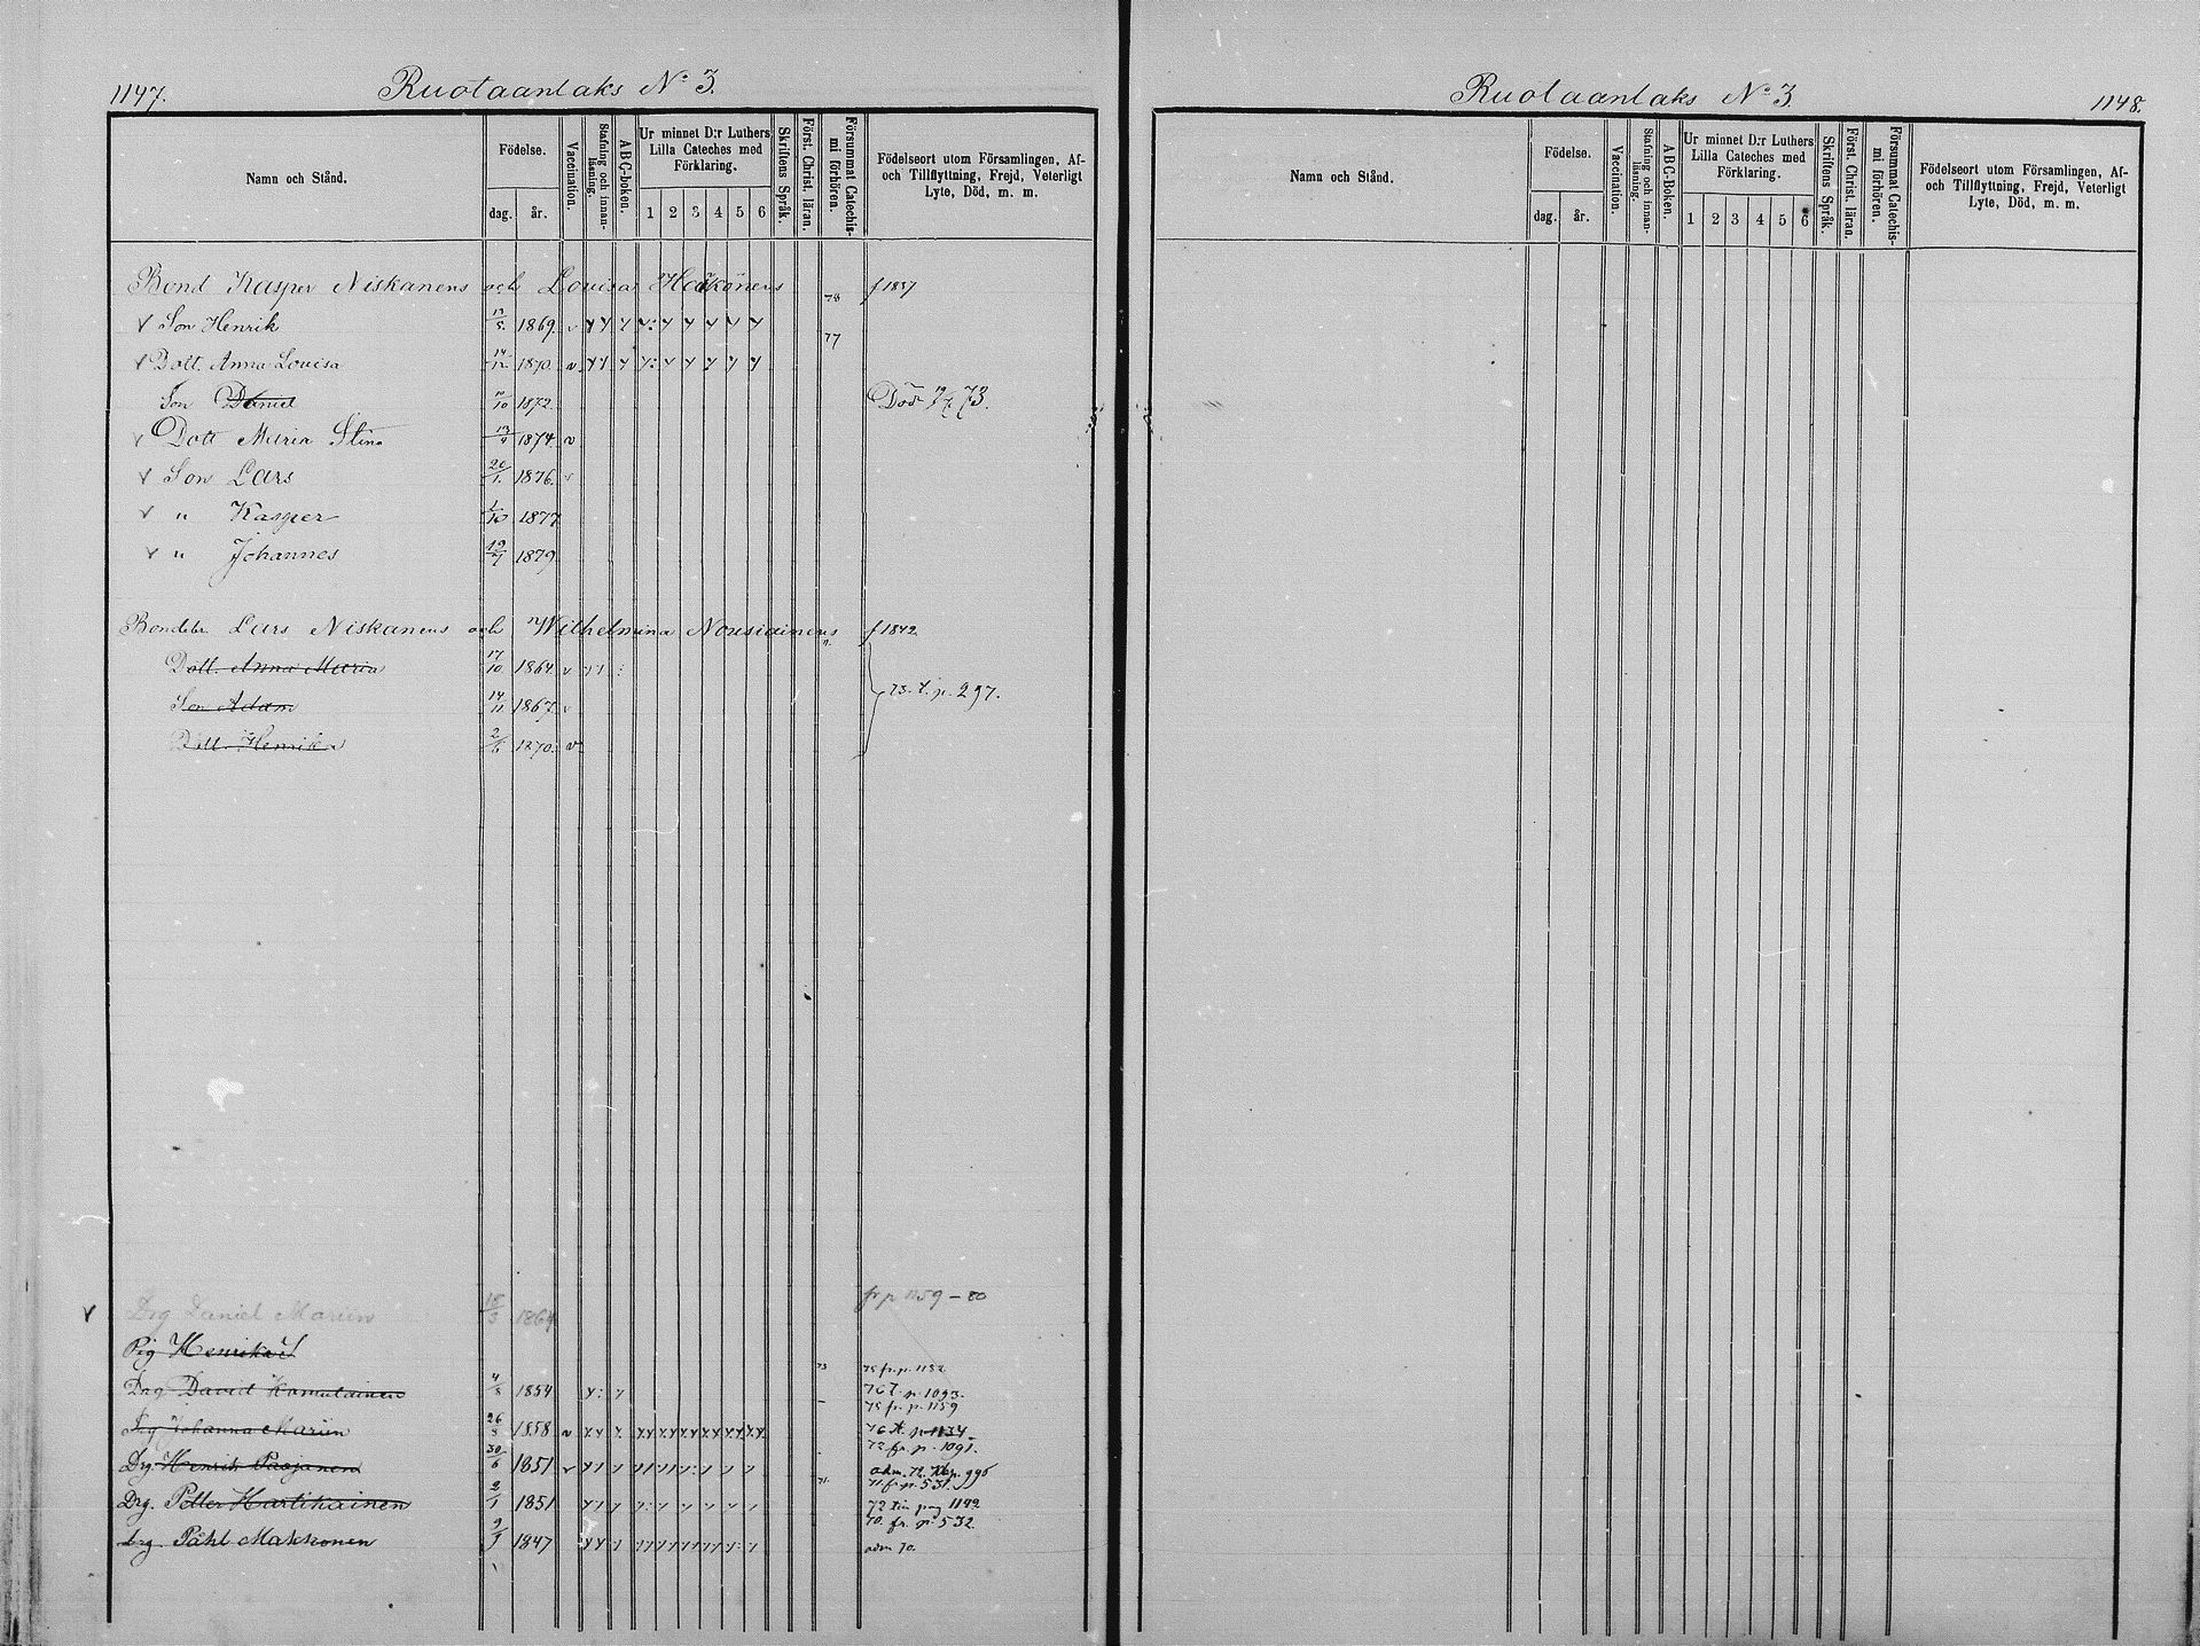 1147.
Ruotaanlaks No 3.
Namn och Stånd.
Födelse.
dag. år.
Vaccination.
Stafning och innan-läsning.
ABC-boken.
Ur minnet D:r Luthers Lilla Cateches med Förklaring.
1 2 3 4 5 6
Skriftens Språk.
Först. Christ. läran.
Försummat Catechis-mi förhören.
Födelseort utom Församlingen, Af- och Tillflyttning, Frejd, Veterligt Lyte, Död, m. m.
Bond Kasper Niskanens och Lovisa Hackönens 78 f 1837
v Son Henrik 17/5 1869. 77
v Dott. Anna Lovisa 14/12 1870. v
Son Daniel /10 1872. Död 19/7 73.
v Dott Maria Stina 13/9 1874. v
v Son Lars 20/1. 1876. v
v " Kasper 1/10 1877
v " Johannes 19/7 1879
Bondebr. Lars Niskanens och Wilhelmina Nousiainens f 1842.
Dott. Anna Maria 17/10 1864. v
Son Adam 14/11 1867. v 73. t. p. 297.
Dott. Henrika 2/6 1870. v
v Drg Daniel Marien 18/3 1864 fr p 1159 - 80
Pig Henrika
Drg David Komulainen 4/8 1854 73 75 fr. p. 1152
76 t. p. 1093.
Pig Johanna Marien 26/3 1858 v 75 fr. p. 1159
76 t. p. 1134
Drg. Henrik Paajanen 30/6 1851 v 72 fr. p. 1091.
adm. 72. p. 996
Drg. Petter Hartikainen 2/1 1851 71. 71 fr. p. 531.
72 tin pag 1142
drg. Påhl Makkonen 9/9 1847 70. fr. p. 532.
adm 70.
Ruotaanlaks No 3.
1148.
Namn och Stånd.
Födelse.
dag. år.
Vaccination.
Stafning och innan-läsning.
ABC-Boken.
Ur minnet D:r Luthers Lilla Cateches med Förklaring.
1 2 3 4 5 6
Skriftens Språk.
Först. Christ. läran.
Försummat Catechis-mi förhören.
Födelseort utom Församlingen, Af- och Tillflyttning, Frejd, Veterligt Lyte, Död, m. m.